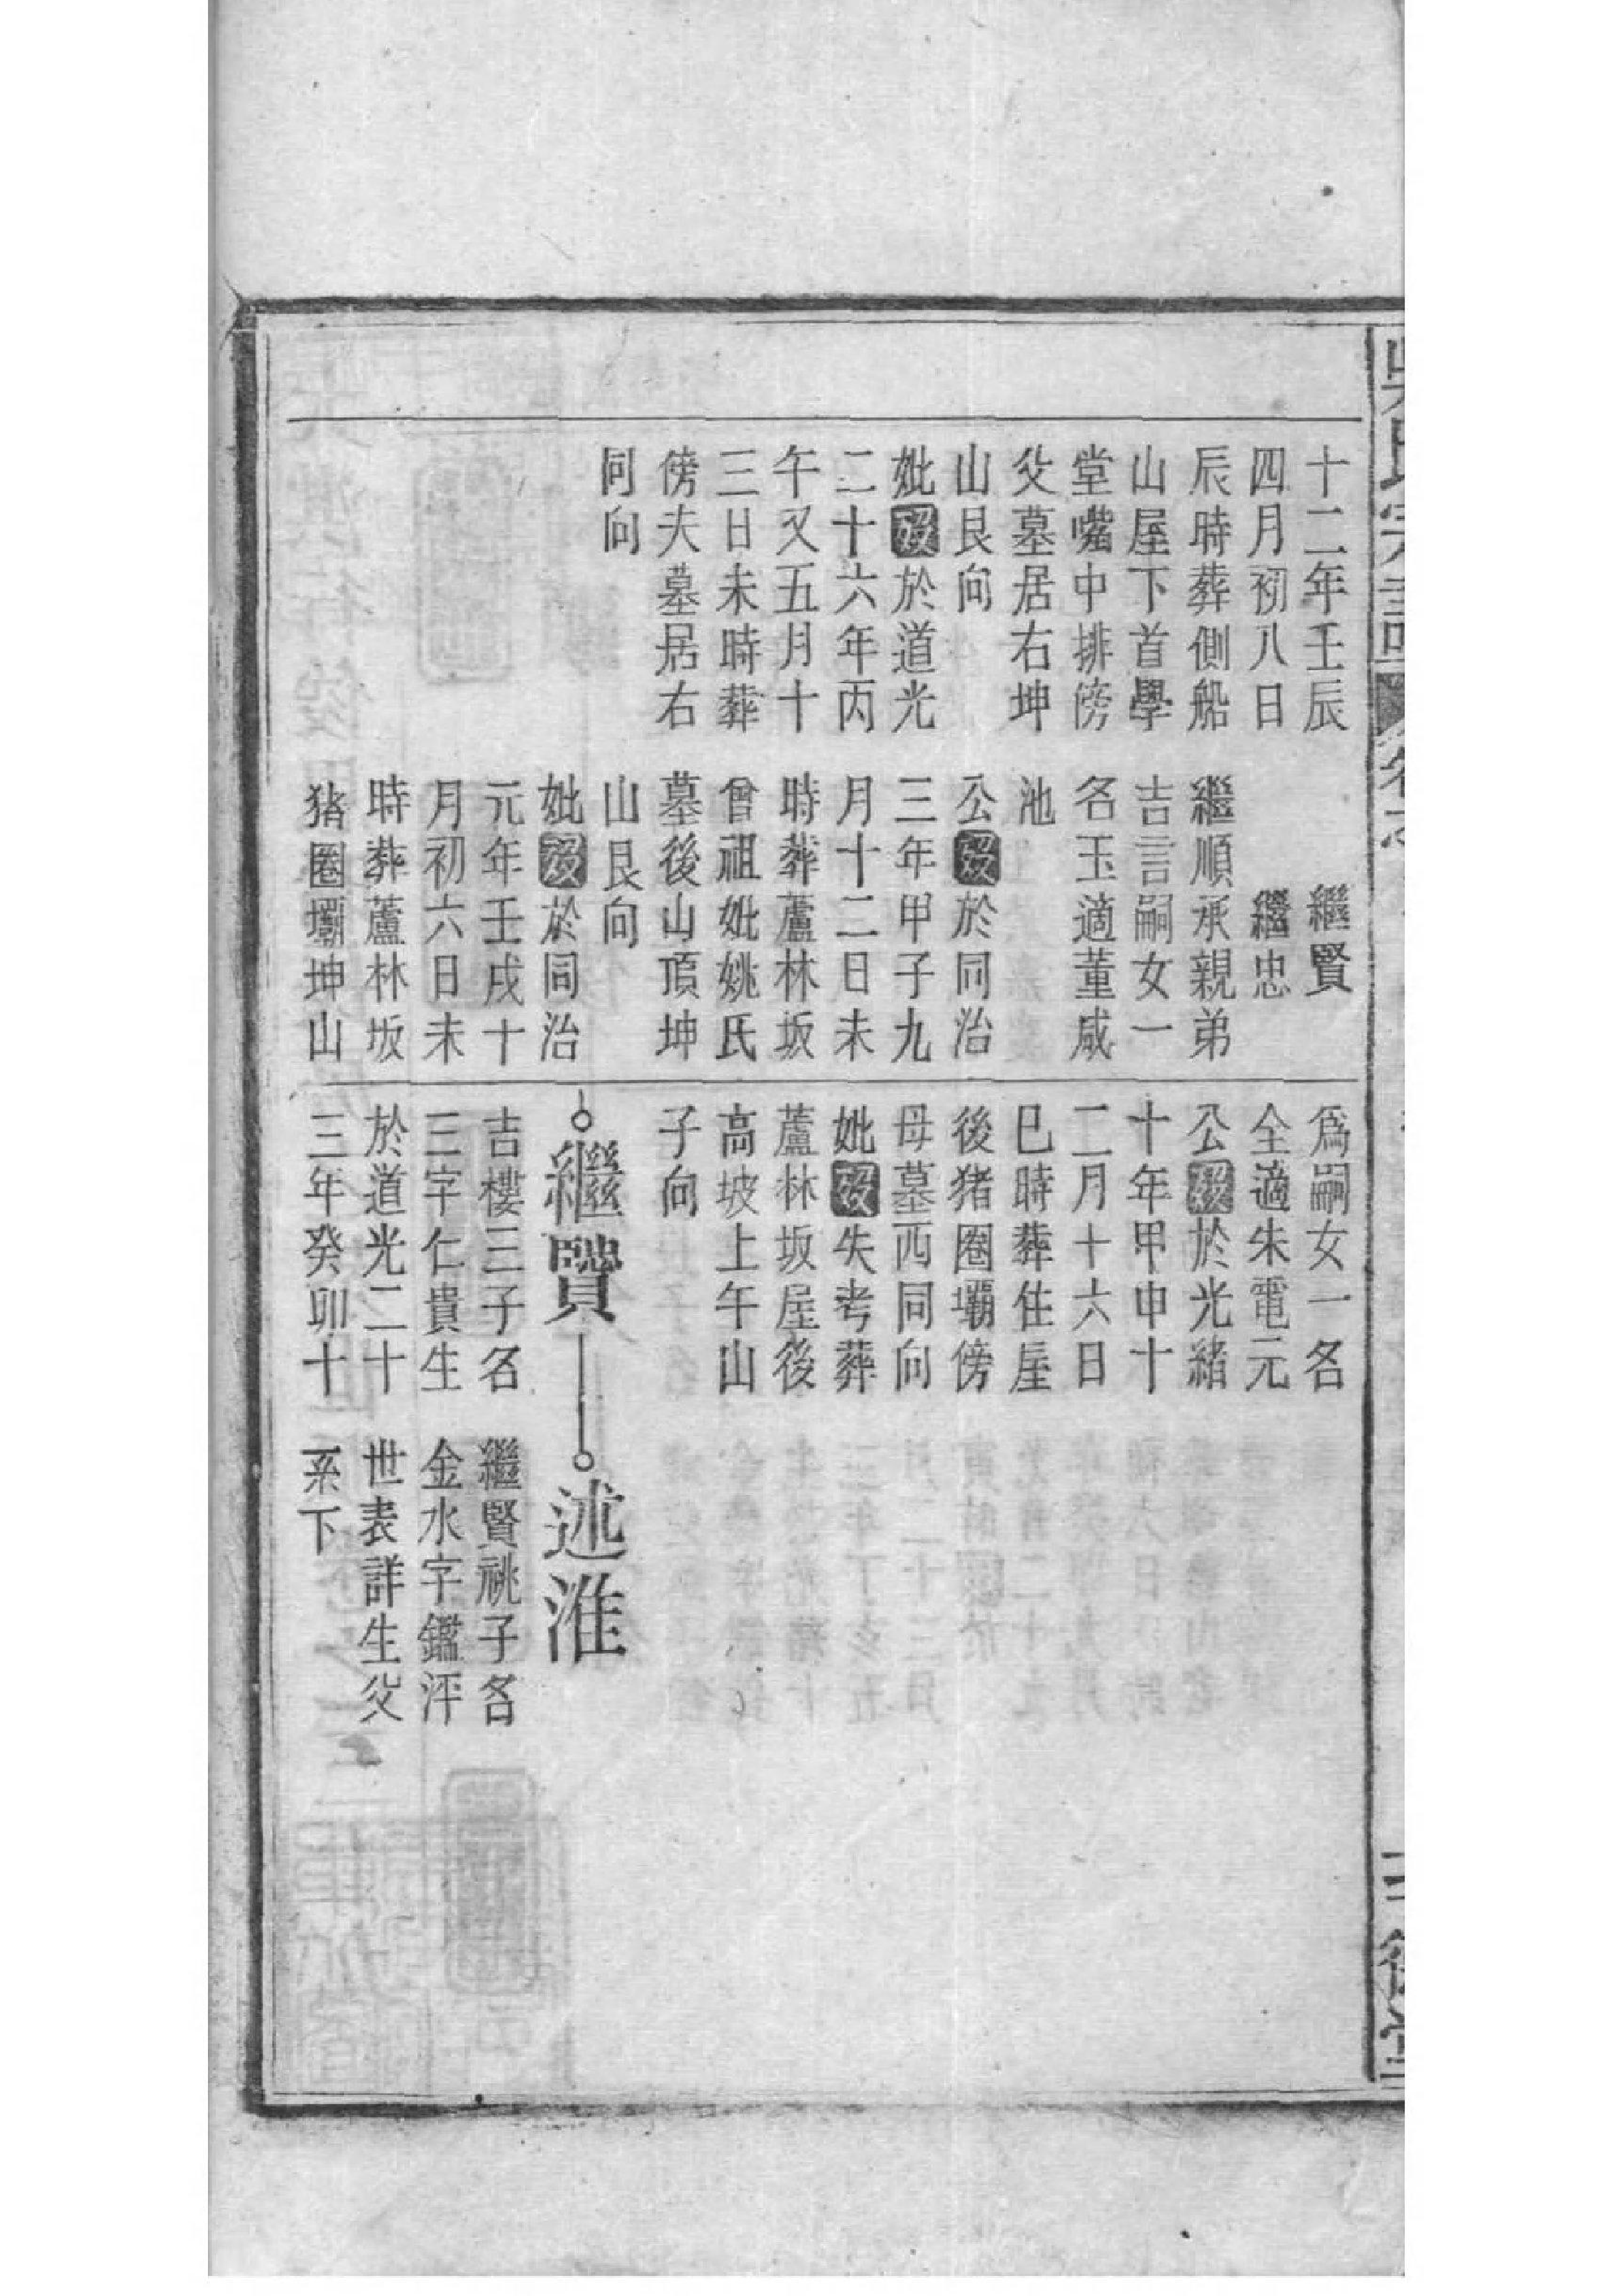 十二年壬辰
四月初八日
辰時葬側船
山屋下首學
堂嘴中排傍
父墓居右坤
山艮向
妣歿於道光
二十六年丙
午又五月十
三日未時葬
傍夫墓居右
同向
繼賢
繼忠
繼順承親弟
吉言嗣女一
名玉適董咸
池
公歿於同治
三年甲子九
月十二日未
時葬蘆林坂
曾祖妣姚氏
墓後山頂坤
山艮向
妣歿於同治
元年壬戌十
月初六日未
時葬蘆林坂
猪圈壩坤山
爲嗣女一名
全適朱電元
公歿於光緒
十年甲申十
二月十六日
巳時葬住屋
後猪圈壩傍
母墓西同向
妣歿失考葬
蘆林坂屋後
高坡上午山
子向
繼寶
吉樓三子名
三字仁貴生
於道光二十
三年癸卯十
述淮
繼賢祧子名
金水字鑑泙
世表詳生父
系下
吳氏宗譜